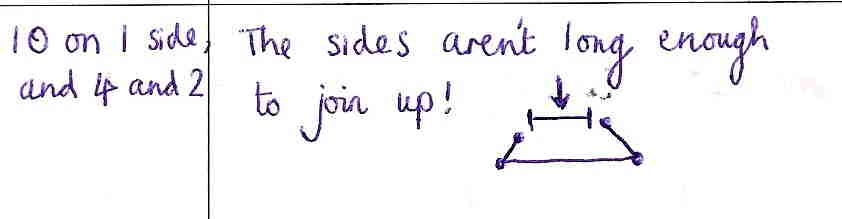 10 on 1 side,
and 4 and 2
The sides aren't long enough
to join up!